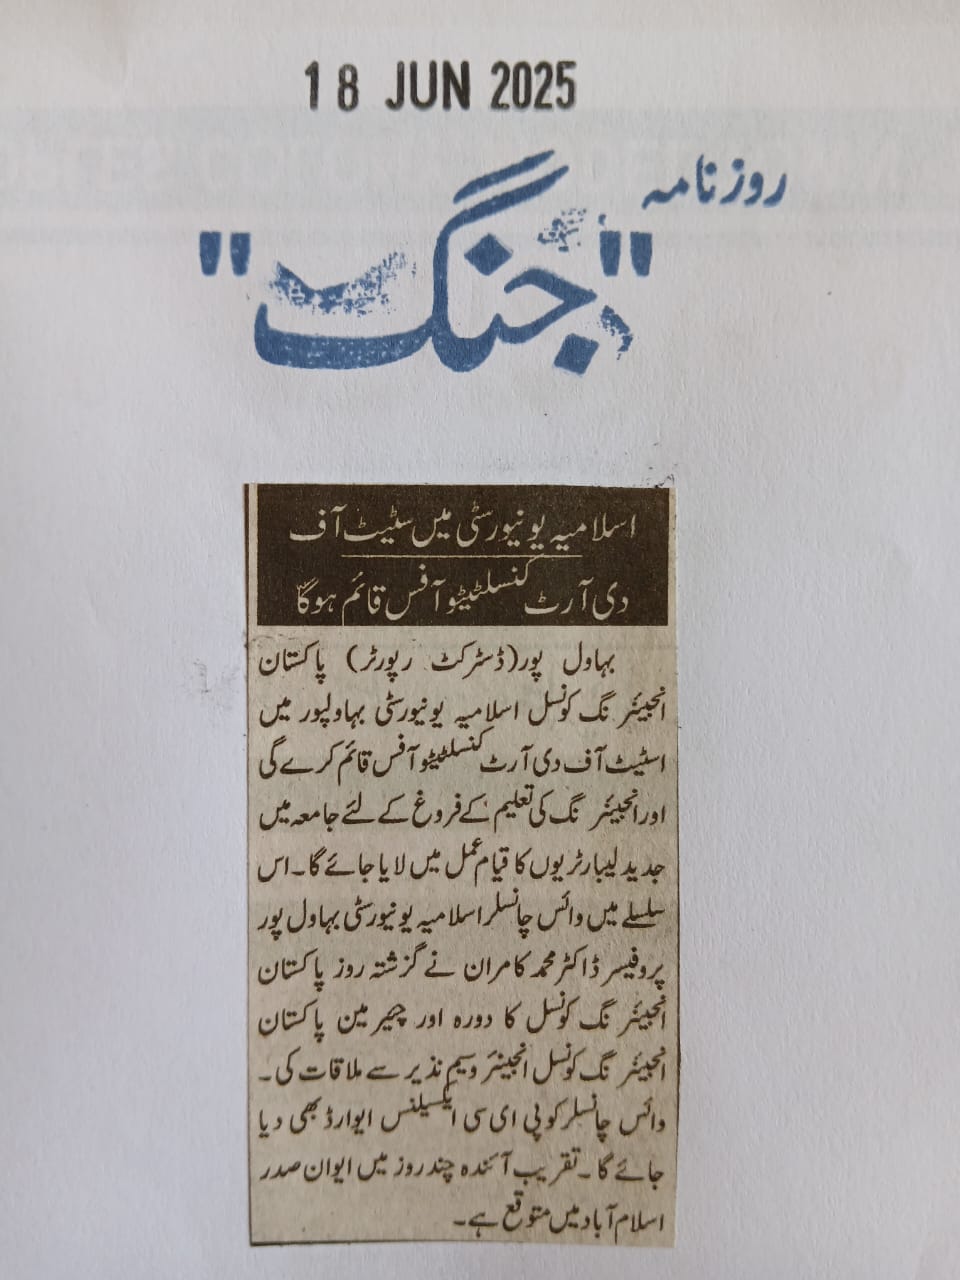 18 JUN 2025
روزنامہ
"جنگ"
اسلامیہ یونیورسٹی میں سٹیٹ آف
دی آرٹ کنسلٹیٹو آفس قائم ہوگا
بہاول پور (ڈسٹرکٹ رپورٹر) پاکستان
انجینئرنگ کونسل اسلامیہ یونیورسٹی بہاولپور میں
اسٹیٹ آف دی آرٹ کنسلٹیٹو آفس قائم کرے گی
اور انجینئرنگ کی تعلیم کے فروغ کے لئے جامعہ میں
جدید لیبارٹریوں کا قیام عمل میں لایا جائے گا۔ اس
سلسلے میں وائس چانسلر اسلامیہ یونیورسٹی بہاول پور
پروفیسر ڈاکٹر محمد کامران نے گزشتہ روز پاکستان
انجینئرنگ کونسل کا دورہ اور چیرمین پاکستان
انجینئرنگ کونسل انجینئر وسیم نذیر سے ملاقات کی۔
وائس چانسلر کو پی ای سی ایکسیلنس ایوارڈ بھی دیا
جائے گا۔ تقریب آئندہ چند روز میں ایوان صدر
اسلام آباد میں متوقع ہے۔